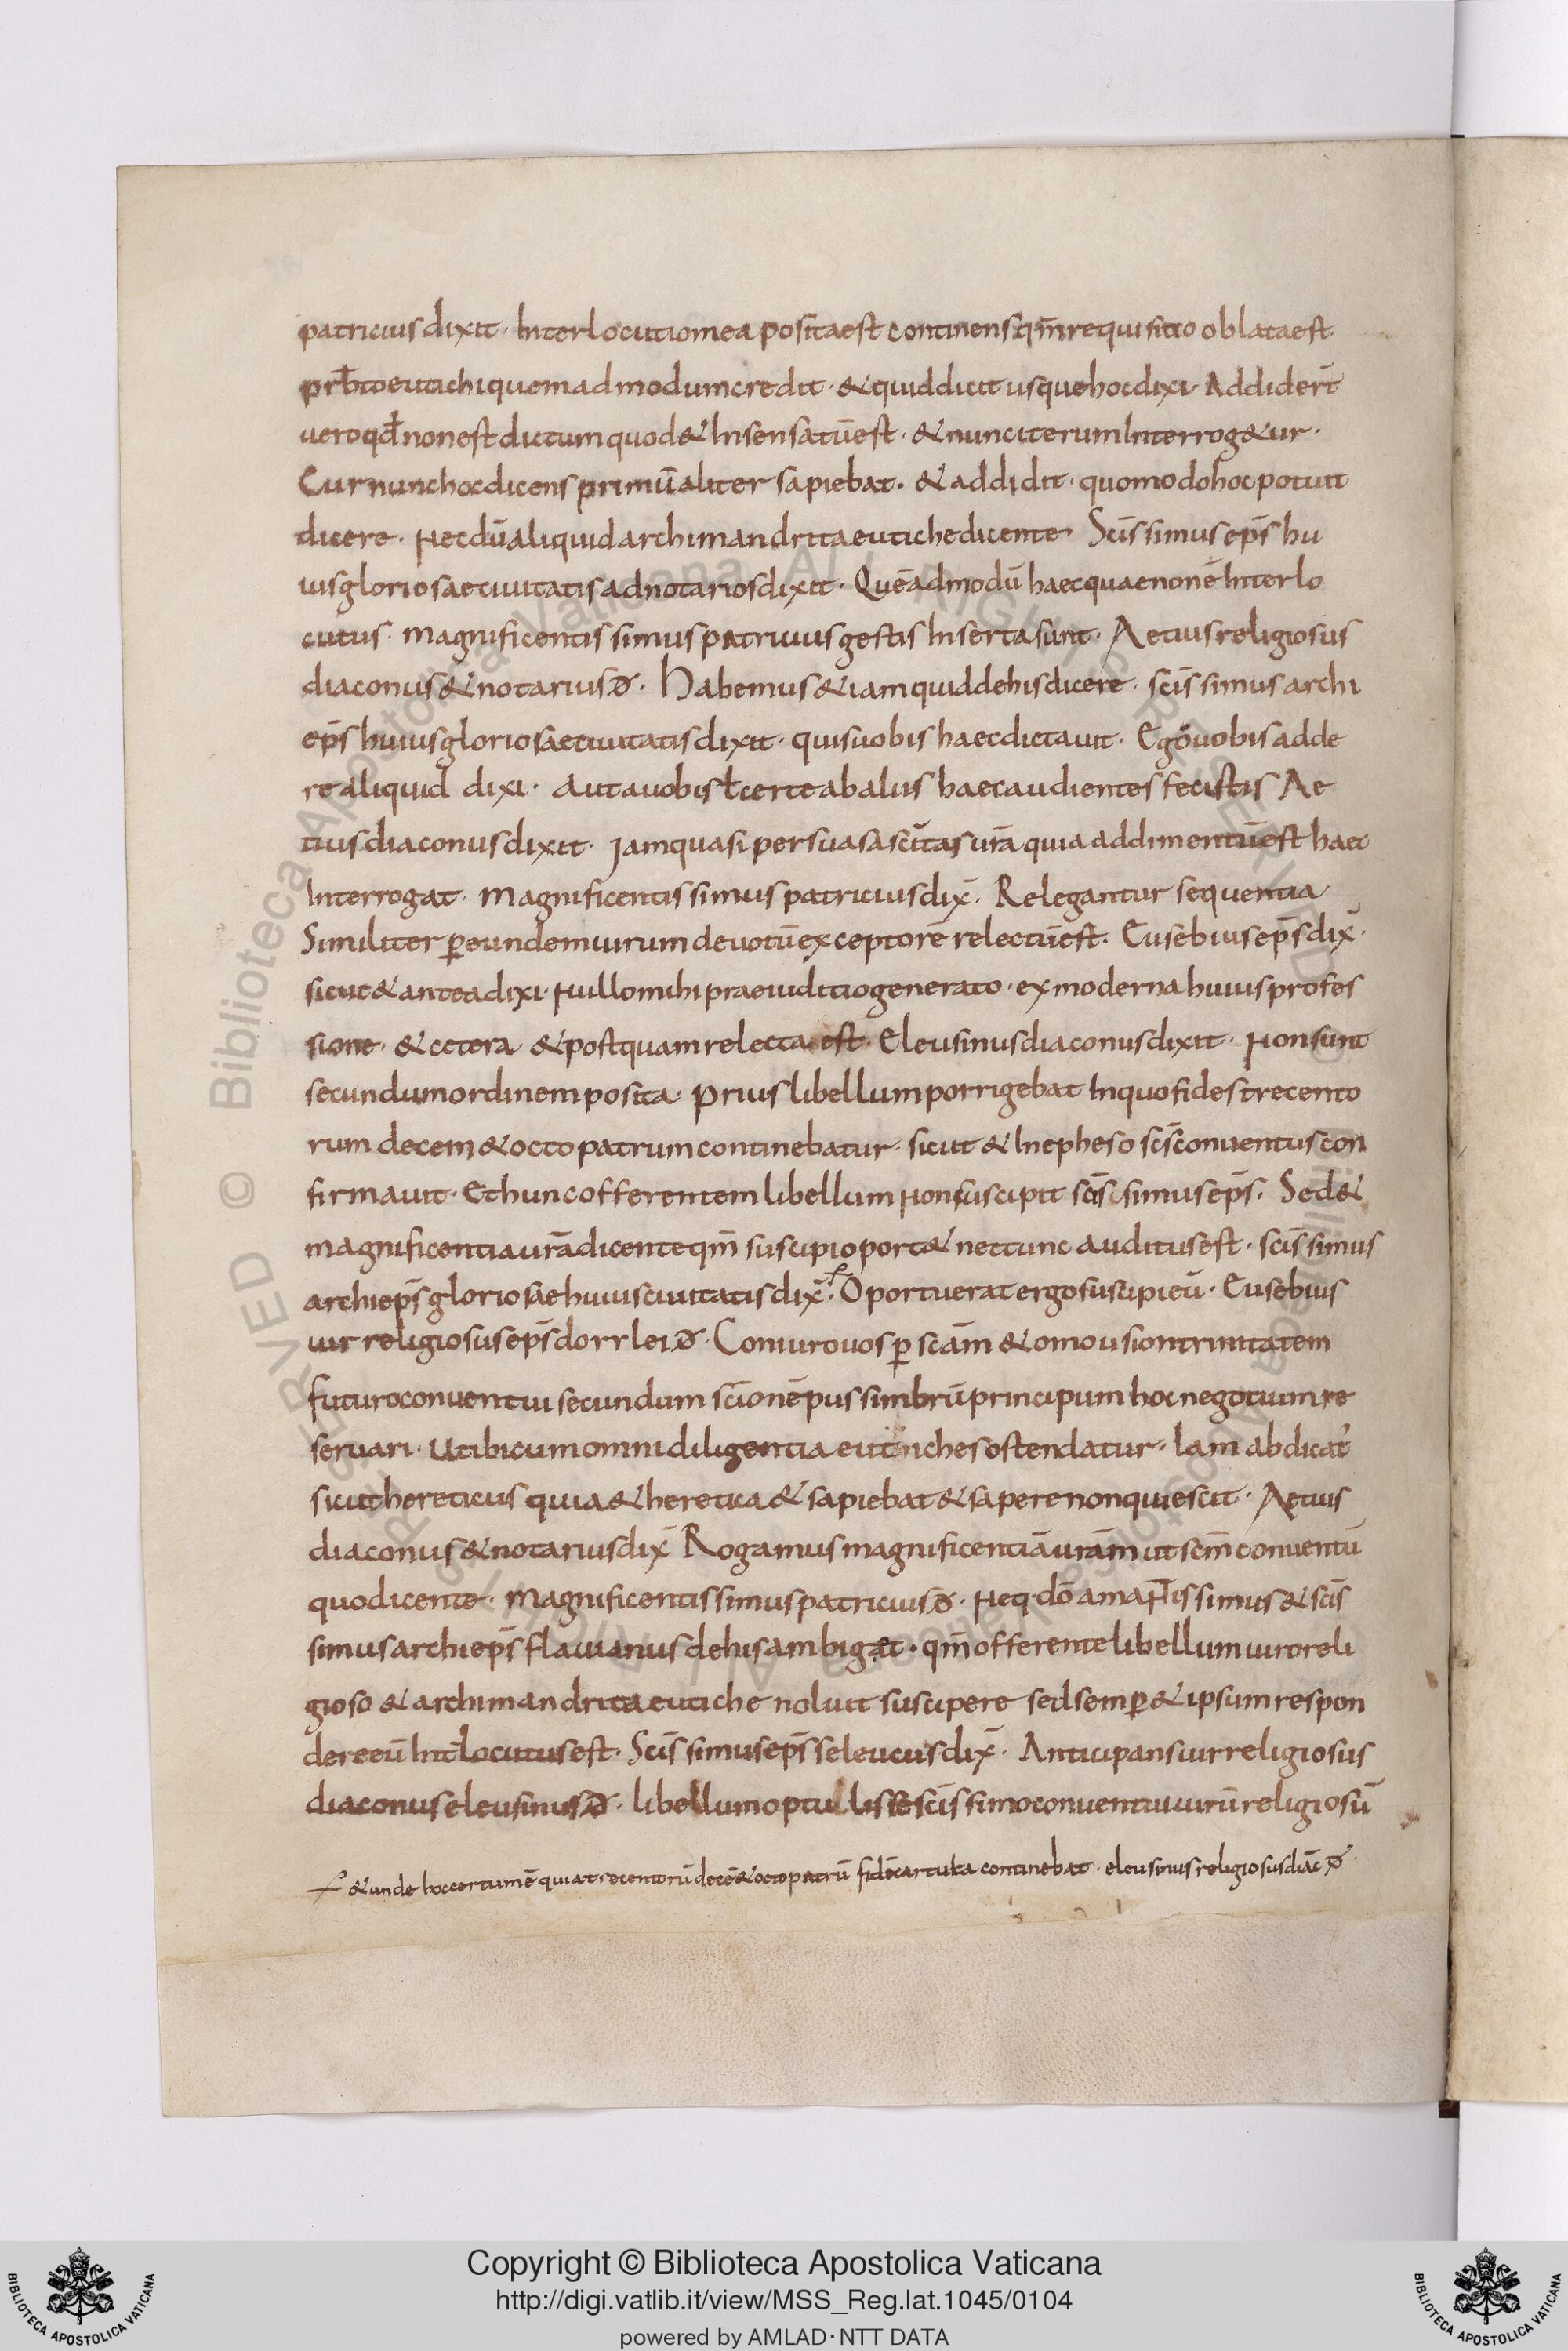 patricius dixit · Interlocutio mea posita est continens qm̄ requisitio oblata est
prƀto eutichi quemadmodum credit · & quid dicit usque hoc dixi · Addider̄t
uero qđ non est dictum quod & Insensatū est · & nunc iterum Interrog&ur ·
Cur nunc hoc dicens primū aliter sapiebat · & addidit · quomodo hoc potuit
dicere · Necdū aliquid archimandrita eutiche dicente · Sc̄issimus ep̄s hu
ius gloriosae ciuitatis ad notarios dixit · Quēadmodū haec quae non ē Interlo
cutus · magnificentissimus patricius gestis Inserta sunt · Aetius religiosus
diaconus & notarius đ · Habemus & iam quid de his dicere · sc̄issimus archi
ep̄s huius gloriosae ciuitatis dixit · quis uobis haec dictauit · Ego uobis adde
re aliquid dixi · aut a uobis ł certe ab aliis haec audientes fecistis Ae
tius diaconus dixit · Iam quasi persuasa sc̄itas ur̄a quia addimentū est haec
Interrogat · magnificentissimus patricius dix̄ · Relegantur sequentia
Similiter ꝑ eundem uirum deuotū exceptorē relectū est · Eusebius ep̄s dix̄ ·
sicut & antea dixi · Nullo mihi praeiuditio generato · ex moderna huius profes
sione · & cetera & postquam relecta est · Eleusinus diaconus dixit · Non sunt
secundum ordinem posita · prius libellum porrigebat In quo fides trecento
rum decem & octo patrum continebatur · sicut & In epheso sc̄s conuentus con
firmauit · Et hunc offerentem libellum Non suscipit sc̄issimus ep̄s · Sed &
magnificentia ur̄a dicente qm̄ suscipi oport& nec tunc auditus est · sc̄issimus
archiep̄s gloriosae huius ciuitatis dix̄ · Oportuerat ergo suscipi eū · Eusebius
uir religiosus ep̄s dorrlei đ · Coniuro uos ꝑ sc̄am & omousion trinitatem
futuro conuentui secundum sc̄ionē pussimorū principum hoc negotium re
seruari · Ut ibi cum omni diligentia eutiches ostendatur · Iam abdicat'
sicut hereticus quia & heretica & sapiebat & sapere non quiescit · Aetius
diaconus & notarius dix̄ Rogamus magnificentiā ur̄am ut sc̄m conuentū
quo dicente · magnificentissimus patricius đ · Neq· dō amaNtissimus & sc̄is
simus archiep̄s flauianus de his ambigat · qm̄ offerente libellum uiro reli
gioso & archimandrita eutiche noluit suscipere sed semꝑ & ipsum respon
dere eū Int̄locutus est · Sc̄issimus ep̄s seleucus dix̄ · Anticipans uir religiosus
diaconus eleusinus đ · libellum optulisse sc̄issimo conuentui uirū religiosū
& unde hoc certum ē quia trecentorū decē & octo patrū fidē cartula continebat · eleusinus religiosus diāc đ
Copyright © Biblioteca Apostolica Vaticana
http://digi.vatlib.it/view/MSS_Reg.lat.1045/0104
powered by AMLAD · NTT DATA
BIBLIOTECA APOSTOLICA VATICANA
BIBLIOTECA APOSTOLICA VATICANA